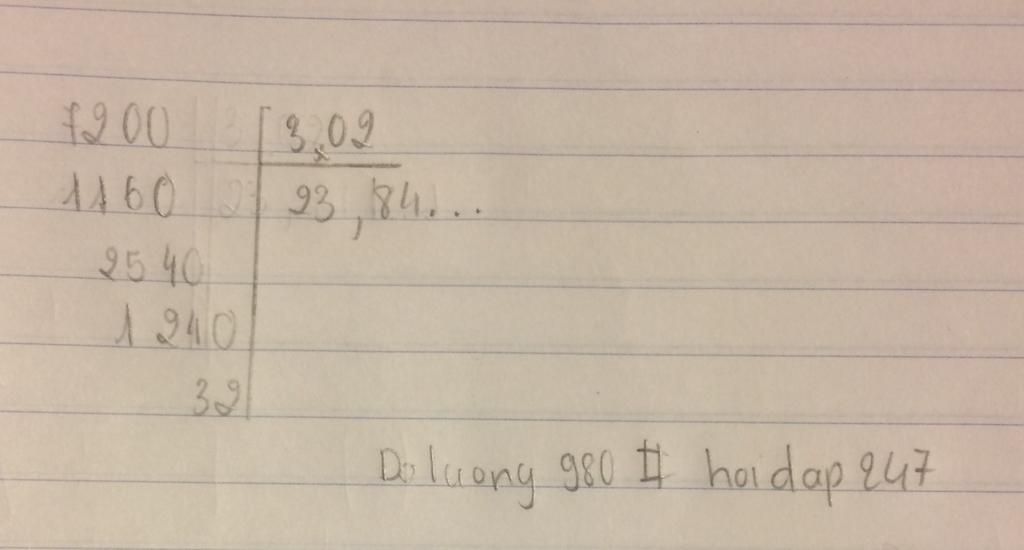 7200 3,02
1160 23,84...
2540
1240
32
Doluong 980 II hoidap 247